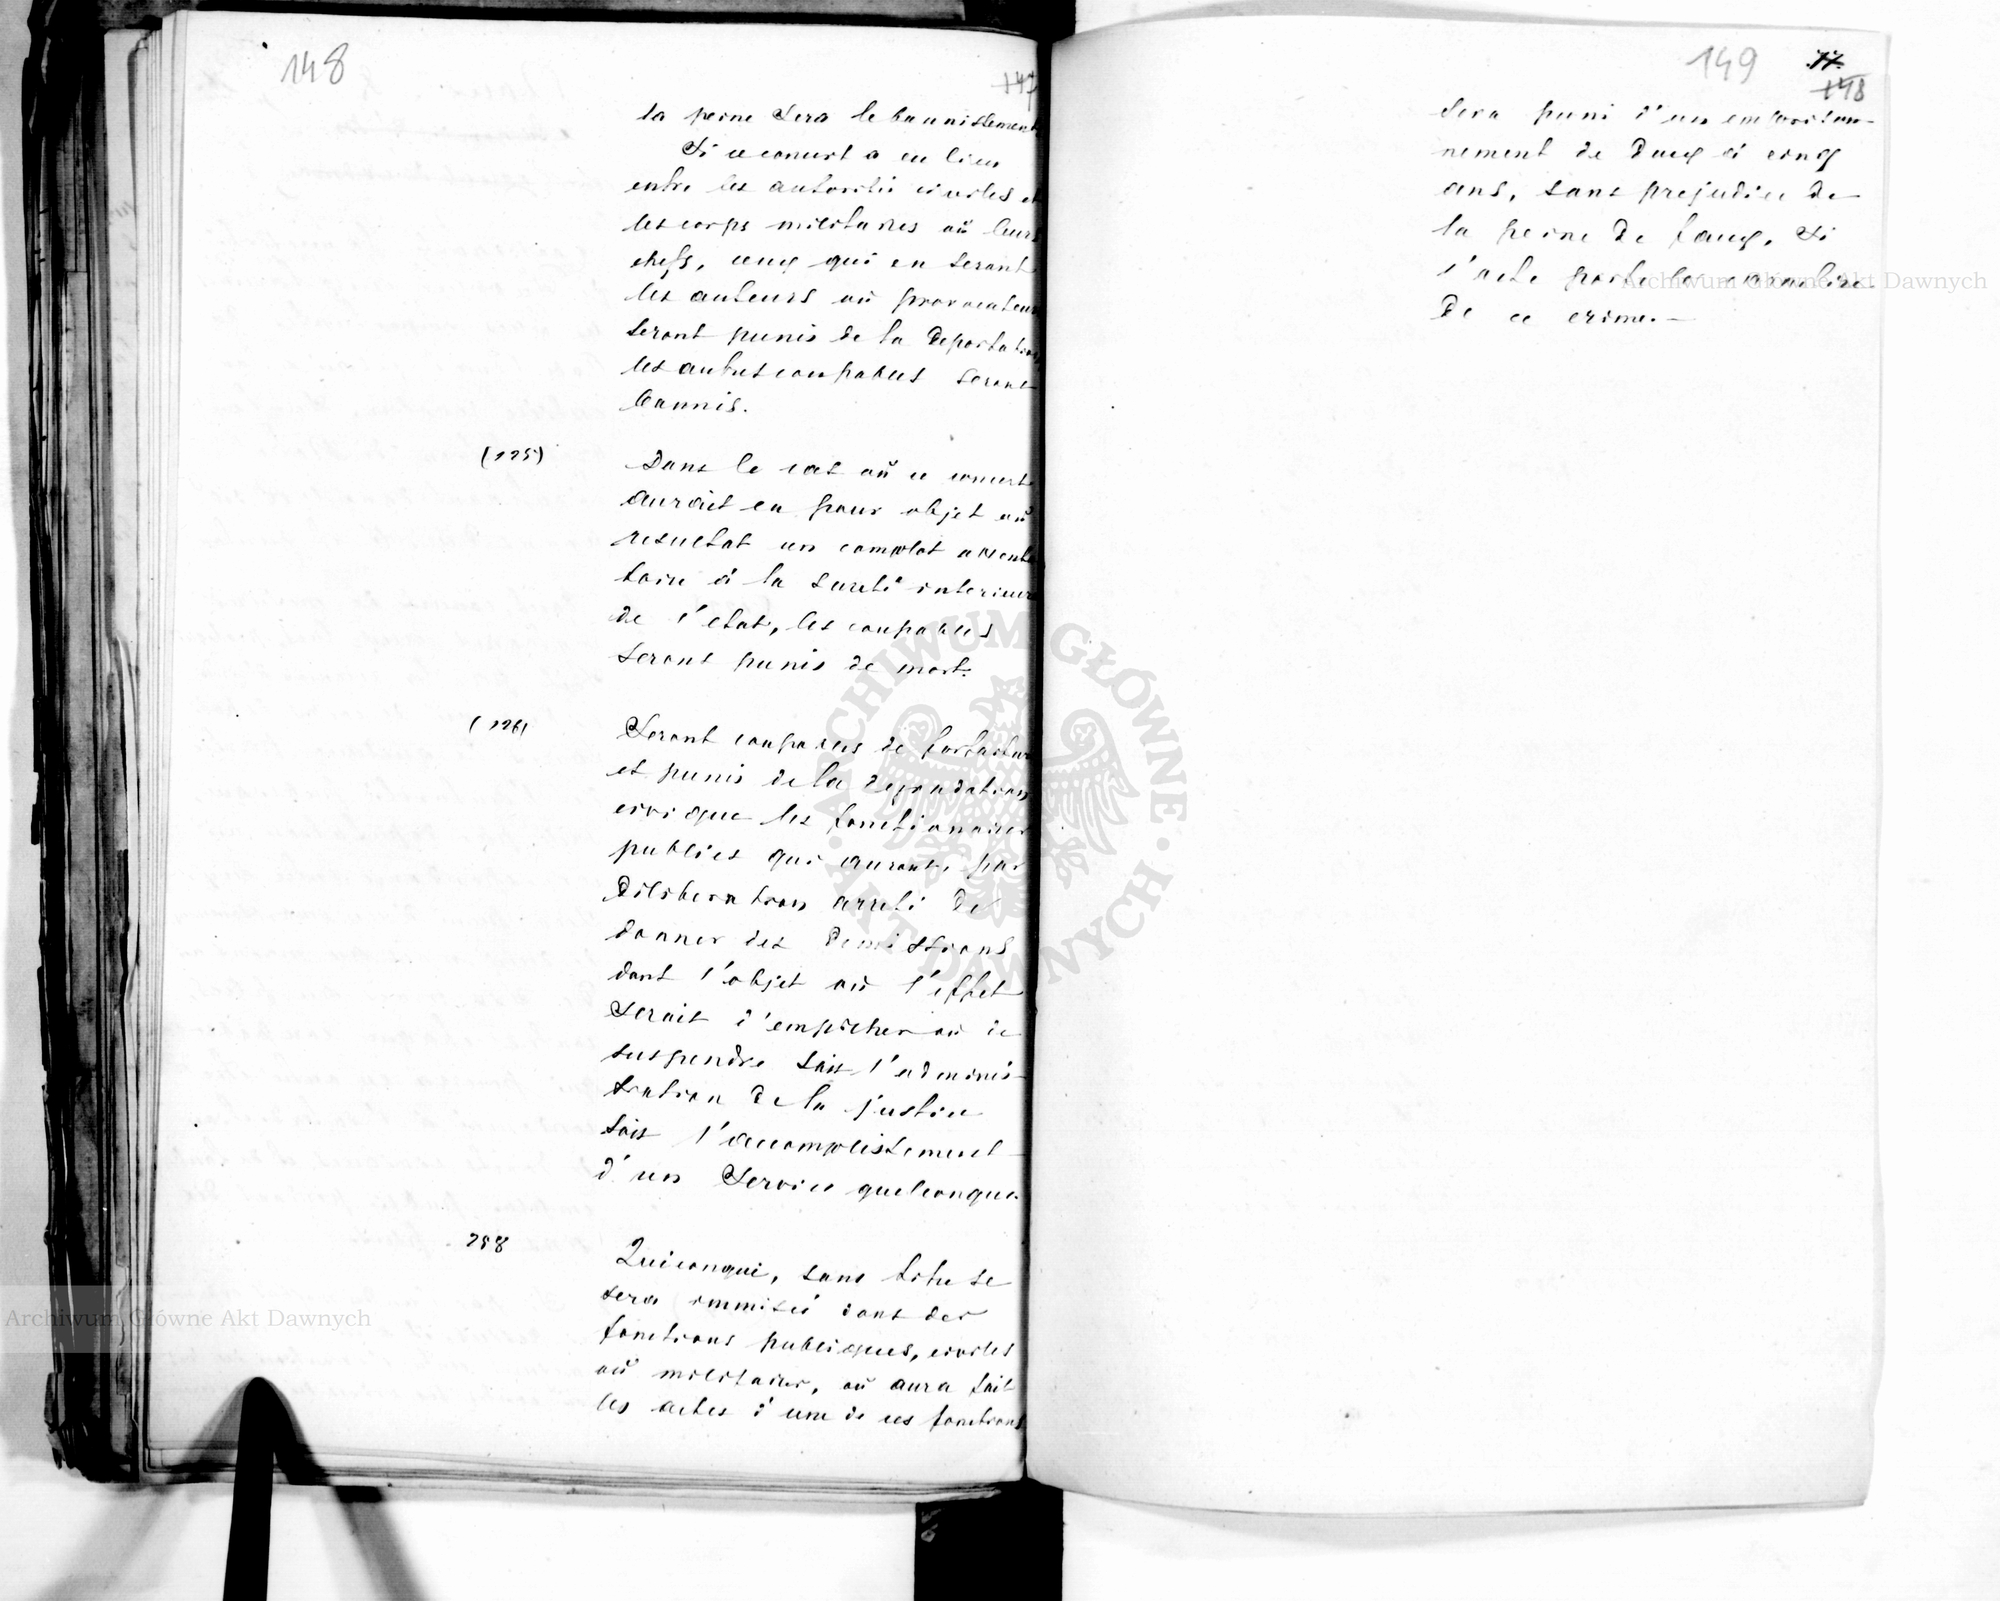 148
147
la peine sera le bannissement
Si ce concert a eu lieu
entre les autorités civiles et
les corps militaires où leurs
chefs, ceux qui en seront
les auteurs où provocateurs
seront punis de la deportation
les autres coupables seront
bannis.
(125)
Dans le cas où ce concert
auroit eu pour objet où
resultat un complot attenta
toire à la sureté interieure
de l'etat, les coupables
seront punis de mort.
(126)
Seront coupables de forfaiture
et punis de la degradation
civique les fonctionnaires
publics qui auront, par
deliberation arreté de
donner des demissions
dont l'objet où l'effet
serait d'empêcher où de
suspendre soit l'adminis-
tration de la justice
soit l'accomplissement
d'un Service quelconque.
258
Quiconque, sans titre se
sera immiscé dans des
fonctions publiques, civiles
où militaires, où aura fait
les actes d'une de ces fonctions
149
77.
148
sera puni d'un emprison-
nement de deux à cinq
ans, sans prejudice de
la peine de faux, si
l'acte porte le caractère
de ce crime.—
Archiwum Główne Akt Dawnych
Archiwum Główne Akt Dawnych
ARCHIWUM GŁÓWNE · AKT DAWNYCH ·